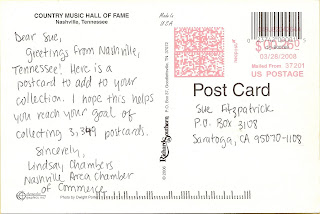 COUNTRY MUSIC HALL OF FAME
Nashville, Tennessee
Made in
USA
Dear Sue,
Greetings from Nashville,
Tennessee! Here is a
postcard to add to your
collection. I hope this helps
you reach your goal of
collecting 3,349 postcards.
Sincerely,
Lindsay Chambers
Nashville Area Chamber
of Commerce
Photo by Dwight
© 2006
03/26/2008
Mailed From 37201
US POSTAGE
Post Card
Sue Fitzpatrick
P.O. Box 3108
Saratoga, CA 95070-1108